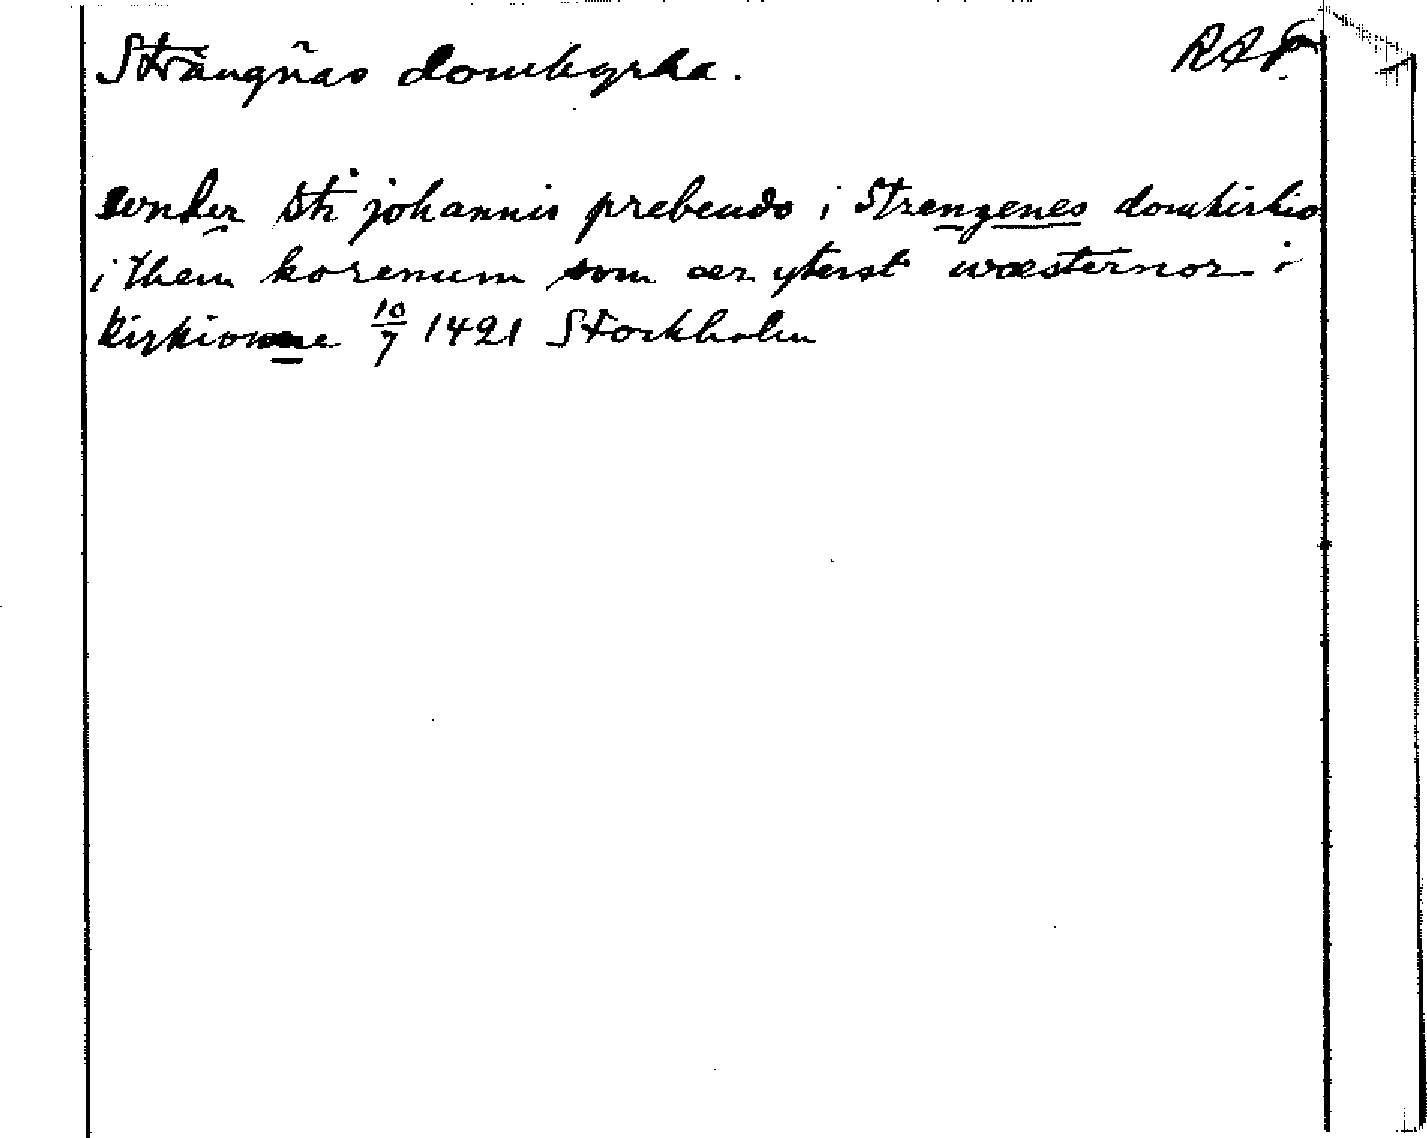 Strängnäs domkyrka. RAP
wnder sti johannis prebendo i Strengenes domkirkio
i them korenum som ær yterst wæsternor i
kirkionne 10/7 1421 Stockholm